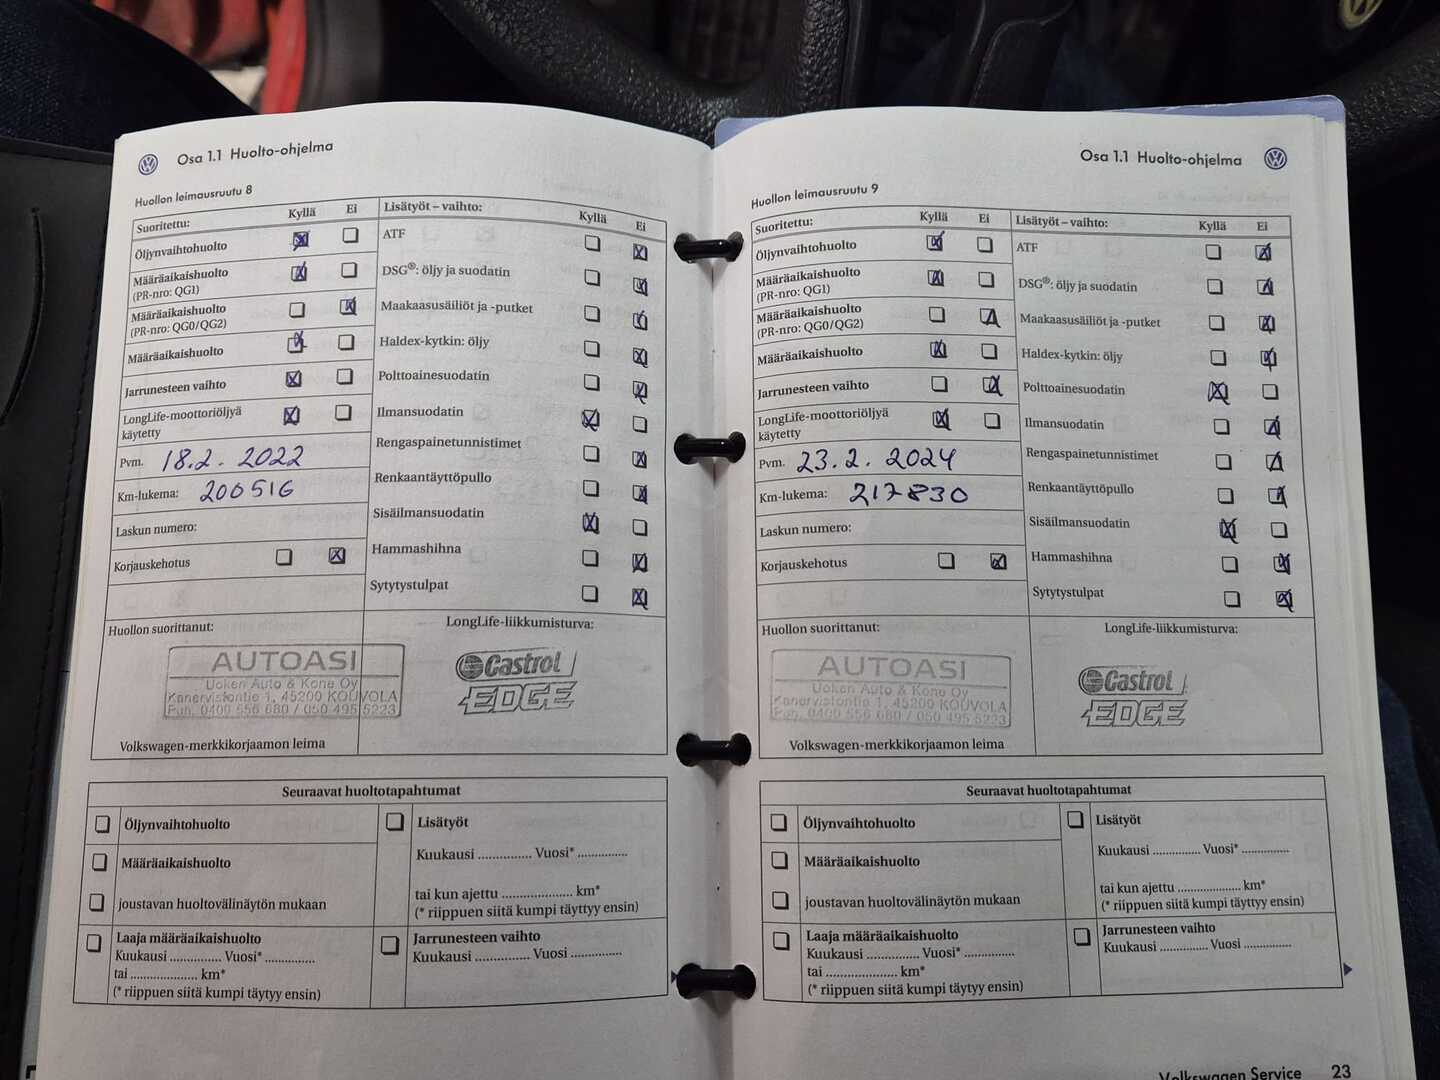 Osa 1.1 Huolto-ohjelma
Huollon leimausruutu 8
Suoritettu: Kyllä Ei
Öljynvaihtohuolto
Määräaikaishuolto
(PR-nro: QG1)
Määräaikaishuolto
(PR-nro: QG0/QG2)
Määräaikaishuolto
Jarrunesteen vaihto
LongLife-moottoriöljyä
käytetty
Pvm. 18.2. 2022
Km-lukema: 200516
Laskun numero:
Korjauskehotus
Lisätyöt – vaihto: Kyllä Ei
ATF
DSG®: öljy ja suodatin
Maakaasusäiliöt ja -putket
Haldex-kytkin: öljy
Polttoainesuodatin
Ilmansuodatin
Rengaspainetunnistimet
Renkaantäyttöpullo
Sisäilmansuodatin
Hammashihna
Sytytystulpat
Huollon suorittanut:
AUTOASI
Uoken Auto & Kone Oy
Kanervistontie 1, 45200 KOUVOLA
Puh. 0400 556 680 / 050 495 5223
Volkswagen-merkkikorjaamon leima
LongLife-liikkumisturva:
Castrol
EDGE
Seuraavat huoltotapahtumat
Öljynvaihtohuolto
Määräaikaishuolto
joustavan huoltovälinäytön mukaan
Laaja määräaikaishuolto
Kuukausi ............... Vuosi* ...............
tai ..................... km*
(* riippuen siitä kumpi täytyy ensin)
Lisätyöt
Kuukausi ............... Vuosi* ...............
tai kun ajettu ..................... km*
(* riippuen siitä kumpi täyttyy ensin)
Jarrunesteen vaihto
Kuukausi ............... Vuosi ...............
Osa 1.1 Huolto-ohjelma
Huollon leimausruutu 9
Suoritettu: Kyllä Ei
Öljynvaihtohuolto
Määräaikaishuolto
(PR-nro: QG1)
Määräaikaishuolto
(PR-nro: QG0/QG2)
Määräaikaishuolto
Jarrunesteen vaihto
LongLife-moottoriöljyä
käytetty
Pvm. 23.2. 2024
Km-lukema: 217830
Laskun numero:
Korjauskehotus
Lisätyöt – vaihto: Kyllä Ei
ATF
DSG®: öljy ja suodatin
Maakaasusäiliöt ja -putket
Haldex-kytkin: öljy
Polttoainesuodatin
Ilmansuodatin
Rengaspainetunnistimet
Renkaantäyttöpullo
Sisäilmansuodatin
Hammashihna
Sytytystulpat
Huollon suorittanut:
AUTOASI
Uoken Auto & Kone Oy
Kanervistontie 1, 45200 KOUVOLA
Puh. 0400 556 680 / 050 495 5223
Volkswagen-merkkikorjaamon leima
LongLife-liikkumisturva:
Castrol
EDGE
Seuraavat huoltotapahtumat
Öljynvaihtohuolto
Määräaikaishuolto
joustavan huoltovälinäytön mukaan
Laaja määräaikaishuolto
Kuukausi ............... Vuosi* ...............
tai ..................... km*
(* riippuen siitä kumpi täytyy ensin)
Lisätyöt
Kuukausi ............... Vuosi* ...............
tai kun ajettu ..................... km*
(* riippuen siitä kumpi täyttyy ensin)
Jarrunesteen vaihto
Kuukausi ............... Vuosi ...............
Volkswagen Service 23